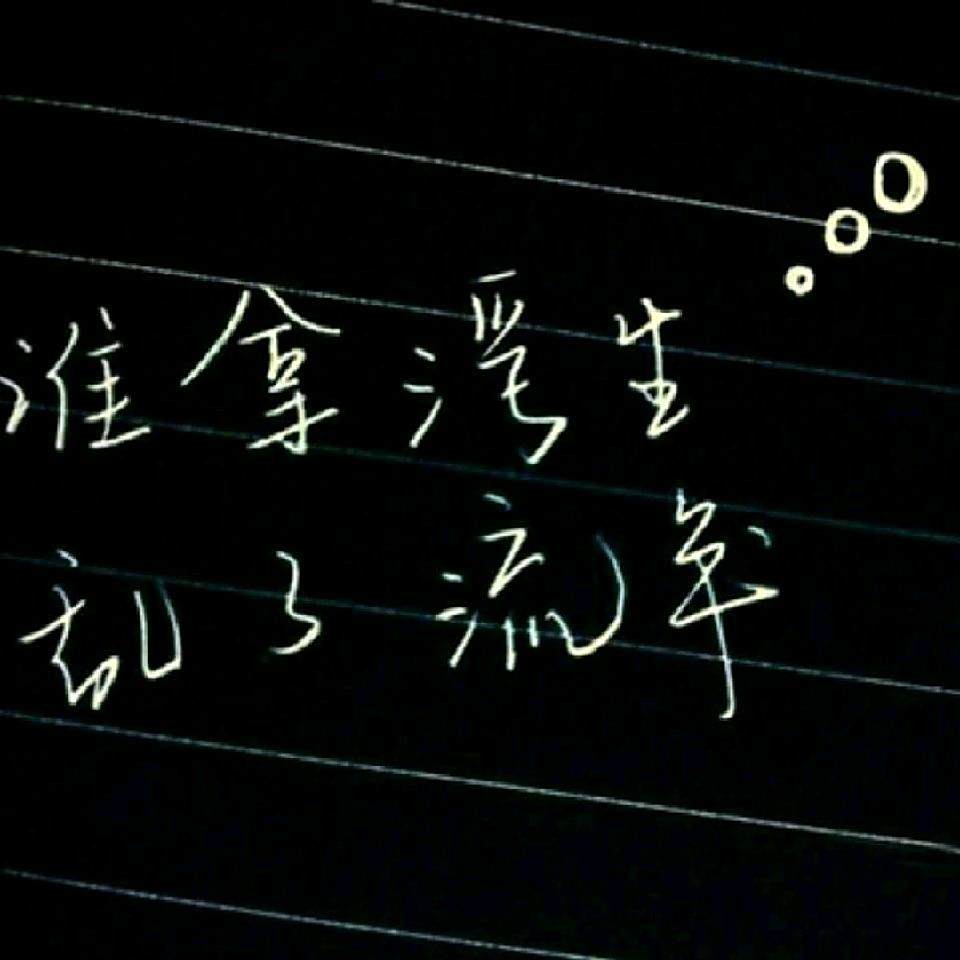 谁拿浮生
乱了流年